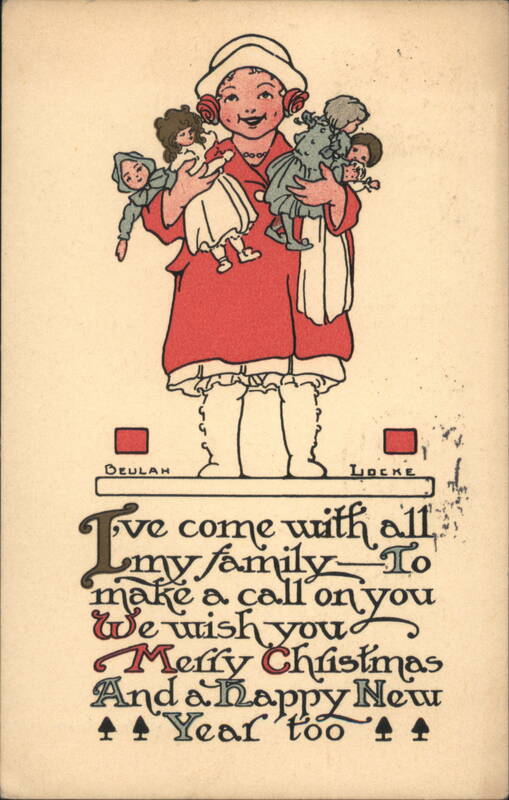 BEULAH LOCKE
I've come with all
my family—To
make a call on you
We wish you
Merry Christmas
And a Happy New
Year too